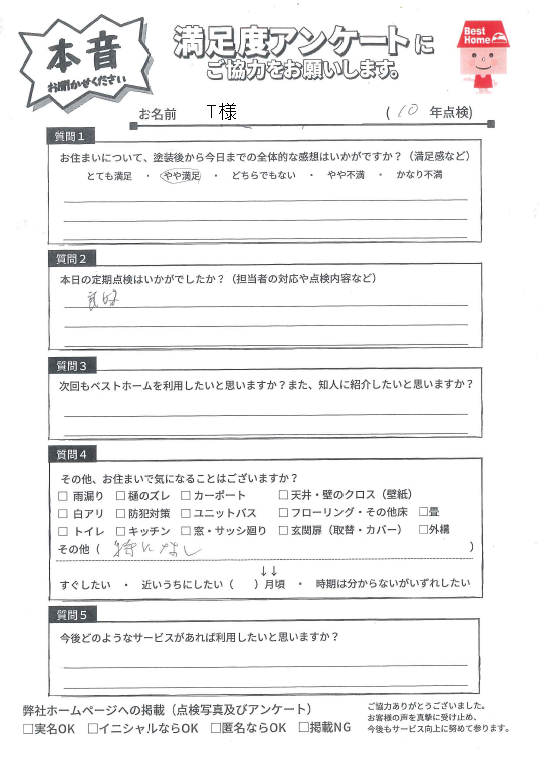 本音
お聞かせください
満足度アンケートに
ご協力をお願いします。
Best Home
お名前 T様 ( 10 年点検)
質問1
お住まいについて、塗装後から今日までの全体的な感想はいかがですか？（満足感など）
とても満足 ・ やや満足 ・ どちらでもない ・ やや不満 ・ かなり不満
質問2
本日の定期点検はいかがでしたか？（担当者の対応や点検内容など）
良好
質問3
次回もベストホームを利用したいと思いますか？また、知人に紹介したいと思いますか？
質問4
その他、お住まいで気になることはございますか？
□ 雨漏り □ 樋のズレ □ カーポート □ 天井・壁のクロス（壁紙）
□ 白アリ □ 防犯対策 □ ユニットバス □ フローリング・その他床 □畳
□ トイレ □ キッチン □ 窓・サッシ廻り □ 玄関扉（取替・カバー） □外構
その他（ 特になし ）
↓↓
すぐしたい ・ 近いうちにしたい（ ）月頃 ・ 時期は分からないがいずれしたい
質問5
今後どのようなサービスがあれば利用したいと思いますか？
弊社ホームページへの掲載（点検写真及びアンケート）
□実名OK □イニシャルならOK □匿名ならOK □掲載NG
ご協力ありがとうございました。
お客様の声を真摯に受け止め、
今後もサービス向上に努めて参ります。